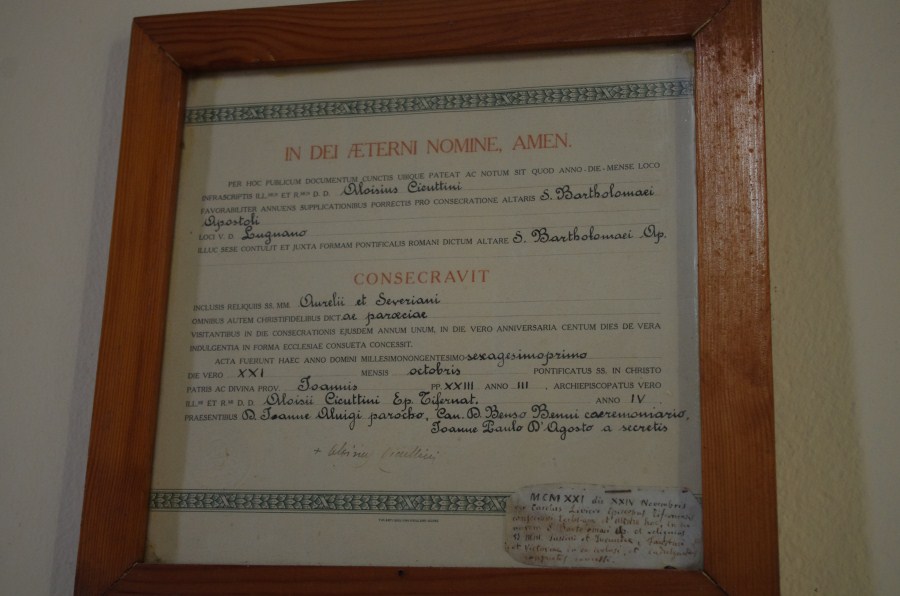 IN DEI ÆTERNI NOMINE, AMEN.
PER HOC PUBLICUM DOCUMENTUM CUNCTIS UBIQUE PATEAT AC NOTUM SIT QUOD ANNO-DIE-MENSE LOCO
INFRASCRIPTIS ILL.MUS ET R.MUS D. D. Aloisius Cicuttini
FAVORABILITER ANNUENS SUPPLICATIONIBUS PORRECTIS PRO CONSECRATIONE ALTARIS S. Bartholomaei
Apostoli
LOCI V. D. Lugnano
ILLUC SESE CONTULIT ET JUXTA FORMAM PONTIFICALIS ROMANI DICTUM ALTARE S. Bartholomaei Ap.
CONSECRAVIT
INCLUSIS RELIQUIIS SS. MM. Aurelii et Severiani
OMNIBUS AUTEM CHRISTIFIDELIBUS DICT ae paroeciae
VISITANTIBUS IN DIE CONSECRATIONIS EJUSDEM ANNUM UNUM, IN DIE VERO ANNIVERSARIA CENTUM DIES DE VERA
INDULGENTIA IN FORMA ECCLESIAE CONSUETA CONCESSIT.
ACTA FUERUNT HAEC ANNO DOMINI MILLESIMONONGENTESIMO sexagesimoprimo
DIE VERO XXI MENSIS octobris PONTIFICATUS SS. IN CHRISTO
PATRIS AC DIVINA PROV. Joannis PP. XXIII ANNO III, ARCHIEPISCOPATUS VERO
ILL.MI ET R.MI D. D. Aloisii Cicuttini Ep. Tifernat. ANNO IV
PRAESENTIBUS D. Joanne Aluigi parocho, Can. D. Benso Benni caeremoniario,
Joanne Paulo D'Agosto a secretis
MCMXXI die XXIV Novembris
Episcopus
et